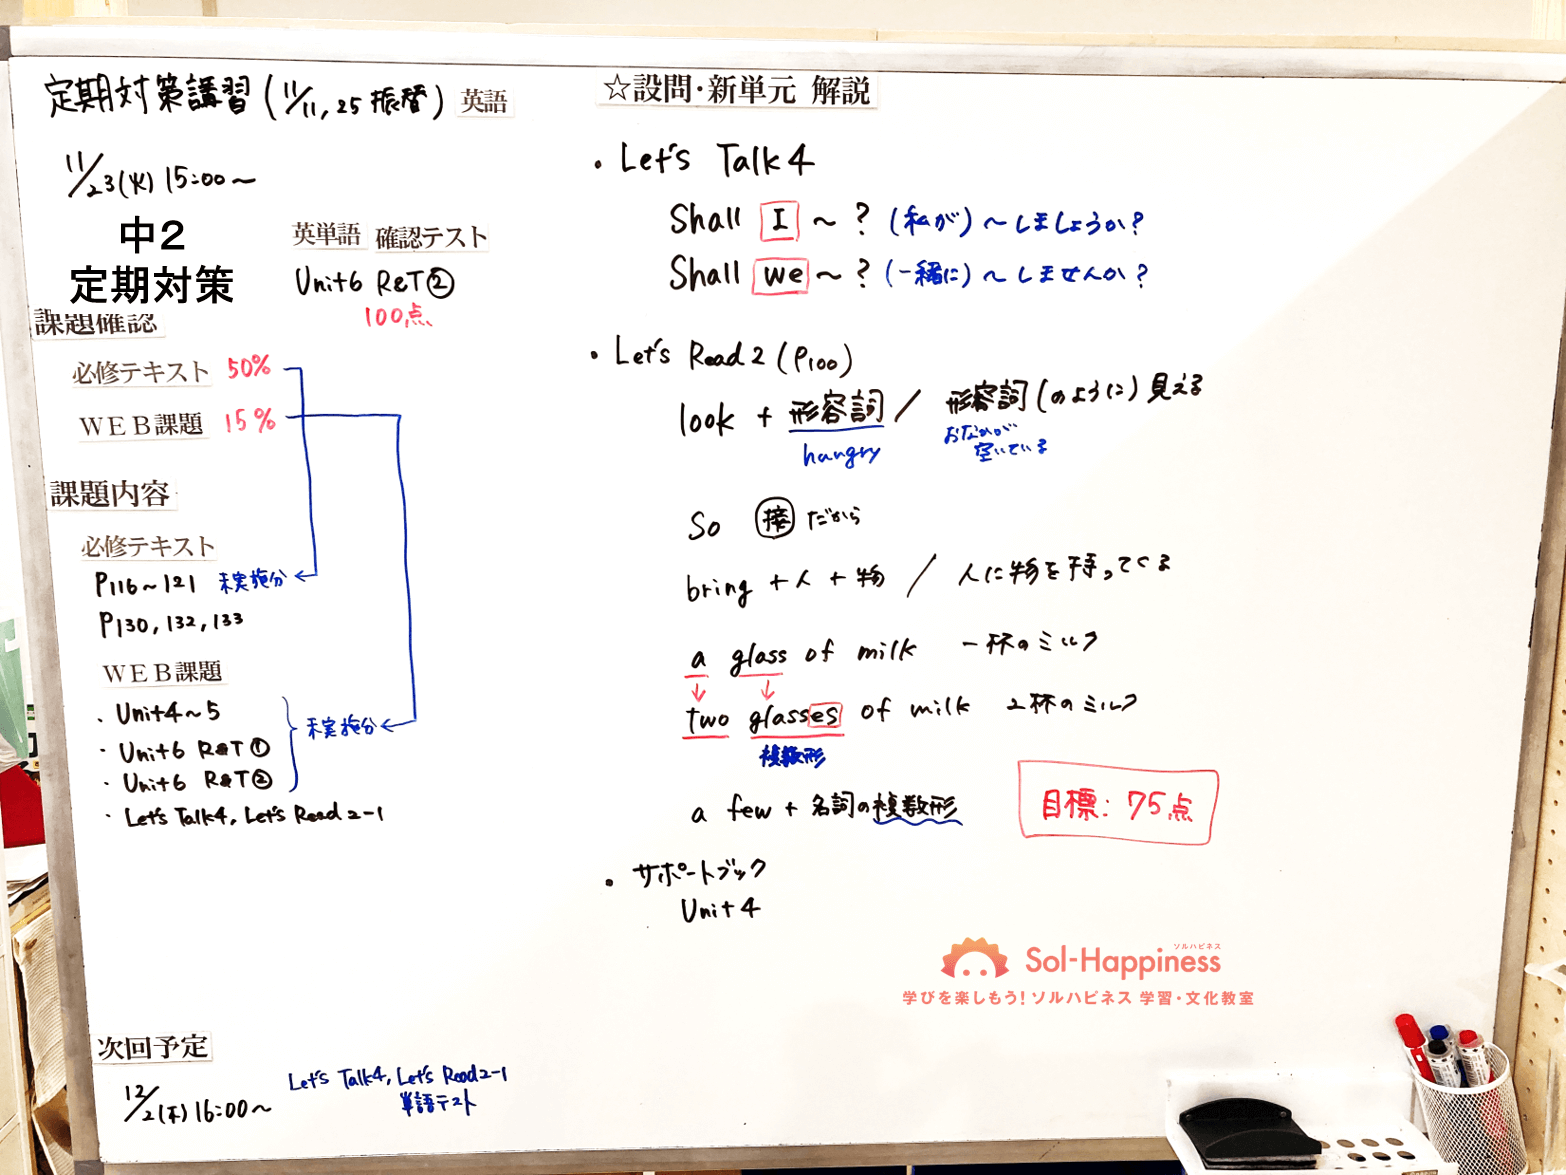 定期対策講習(11/11,25振替) 英語
11/23(火) 15:00～
中2
定期対策
英単語 確認テスト
Unit6 R&T②
100点
課題確認
必修テキスト 50%
WEB課題 15%
課題内容
必修テキスト
P116～121 未実施分
P130, 132, 133
WEB課題
・Unit4～5
・Unit6 R&T①
・Unit6 R&T②
未実施分
・Let's Talk4, Let's Read2-1
次回予定
12/2(木) 16:00～
Let's Talk4, Let's Read2-1
単語テスト
☆設問・新単元 解説
・Let's Talk4
Shall I ～? (私が)～しましょうか?
Shall we ～? (一緒に)～しませんか?
・Let's Read2 (P100)
look + 形容詞 / 形容詞(のように)見える
hangry おなかが
空いている
So 接 だから
bring + 人 + 物 / 人に物を持ってくる
a glass of milk 一杯のミルク
↓ ↓
two glasses of milk 2杯のミルク
複数形
a few + 名詞の複数形
目標: 75点
・サポートブック
Unit4
ソルハピネス
Sol-Happiness
学びを楽しもう! ソルハピネス 学習・文化教室